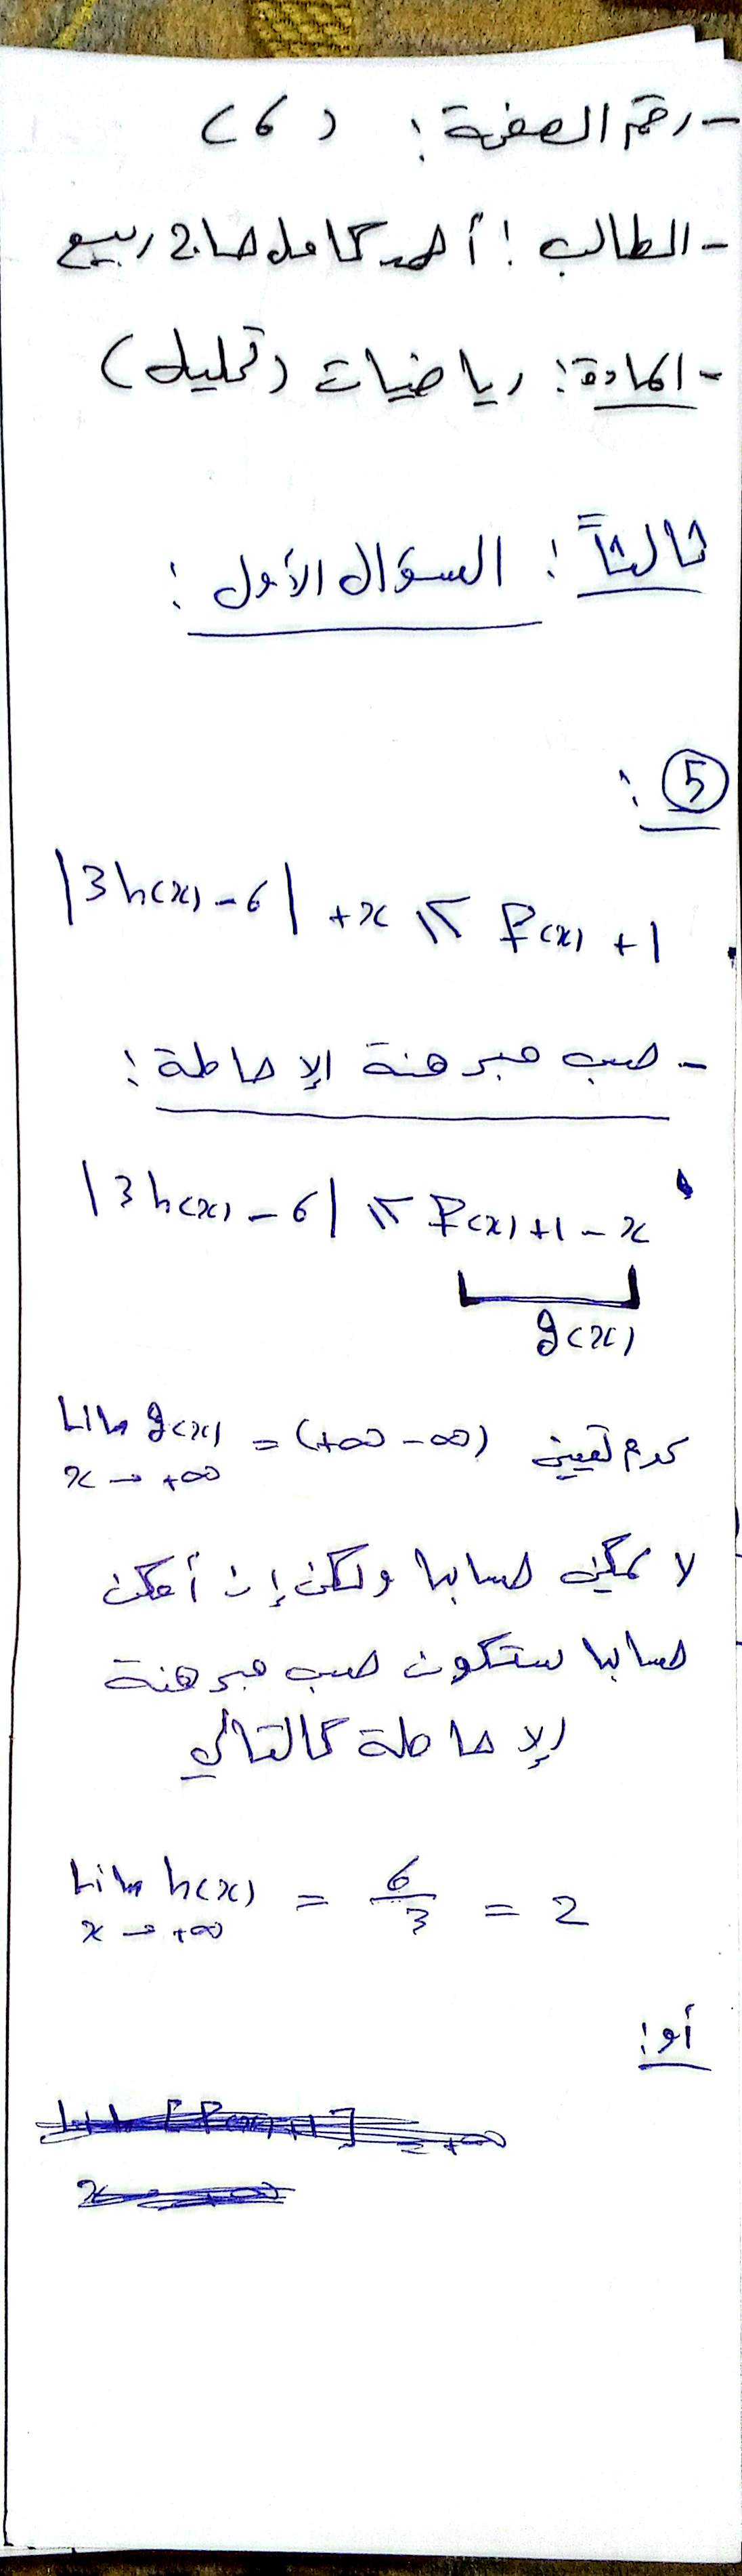 - رقم الصفحة: (6)
- الطالب: أحمد كامل صالح ربيع
- المادة: رياضيات (تحليل)
ثالثاً: السؤال الأول:
5:
|3h(x) - 6| + x ≤ f(x) + 1
- حسب مبرهنة الإحاطة:
|3h(x) - 6| ≤ f(x) + 1 - x
g(x)
Lim g(x) = (+∞ - ∞) عدم تعيين
x → +∞
لا يمكن حسابها ولكن إن أمكن
حسابها ستكون حسب مبرهنة
الإحاطة كالتالي
Lim h(x) = 6/3 = 2
x → +∞
أو: